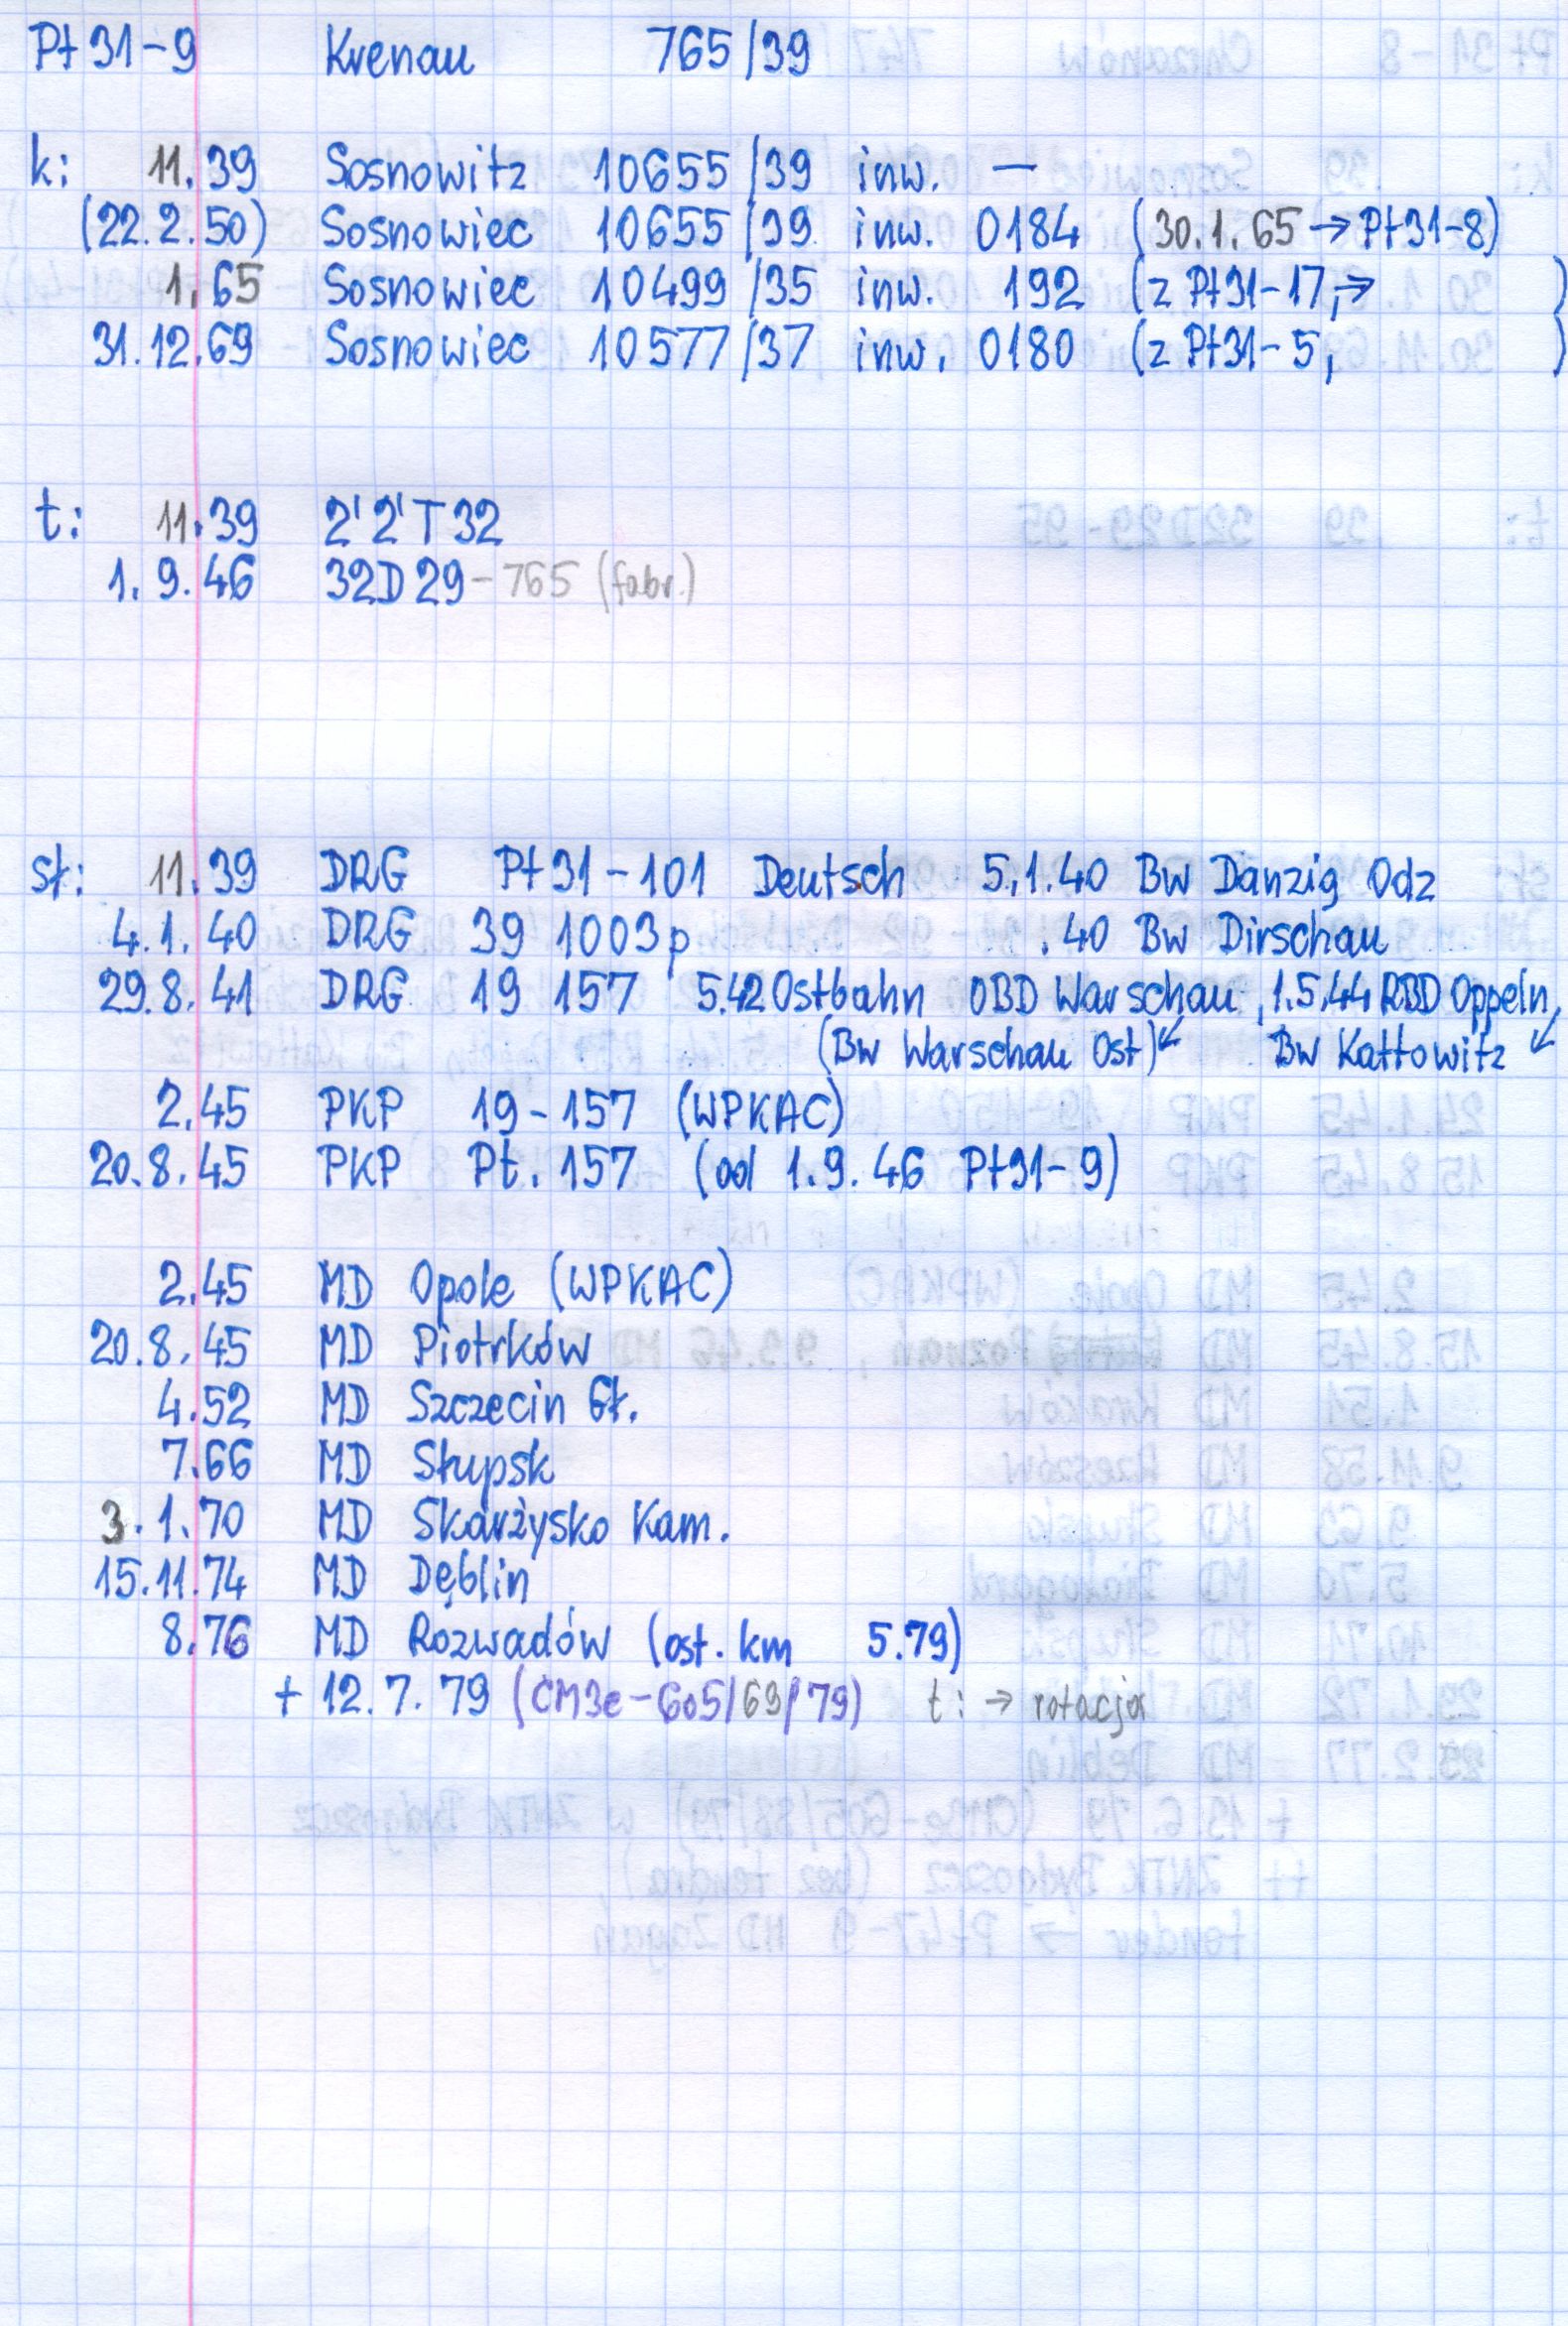 Pt 31-9 Krenau 765/39
k: 11.39 Sosnowitz 10655/39 inw. —
(22.2.50) Sosnowiec 10655/39 inw. 0184 (30.1.65 → Pt31-8)
1.65 Sosnowiec 10499/35 inw. 192 (z Pt31-17, → )
31.12.69 Sosnowiec 10577/37 inw. 0180 (z Pt31-5, )
t: 11.39 2'2'T32
1.9.46 32D29-765 (fabr.)
st: 11.39 DRG Pt31-101 Deutsch 5.1.40 Bw Danzig Odz
4.1.40 DRG 39 1003p .40 Bw Dirschau
29.8.41 DRG 19 157 5.42 Ostbahn OBD Warschau, 1.5.44 RBD Oppeln,
(Bw Warschau Ost)↙ Bw Kattowitz ↙
2.45 PKP 19-157 (WPKAC)
20.8.45 PKP Pt. 157 (od 1.9.46 Pt31-9)
2.45 MD Opole (WPKAC)
20.8.45 MD Piotrków
4.52 MD Szczecin Gł.
7.66 MD Słupsk
3.1.70 MD Skarżysko Kam.
15.11.74 MD Dęblin
8.76 MD Rozwadów (ost. km 5.79)
+ 12.7.79 (CM3e-605/69/79) t: → rotacja